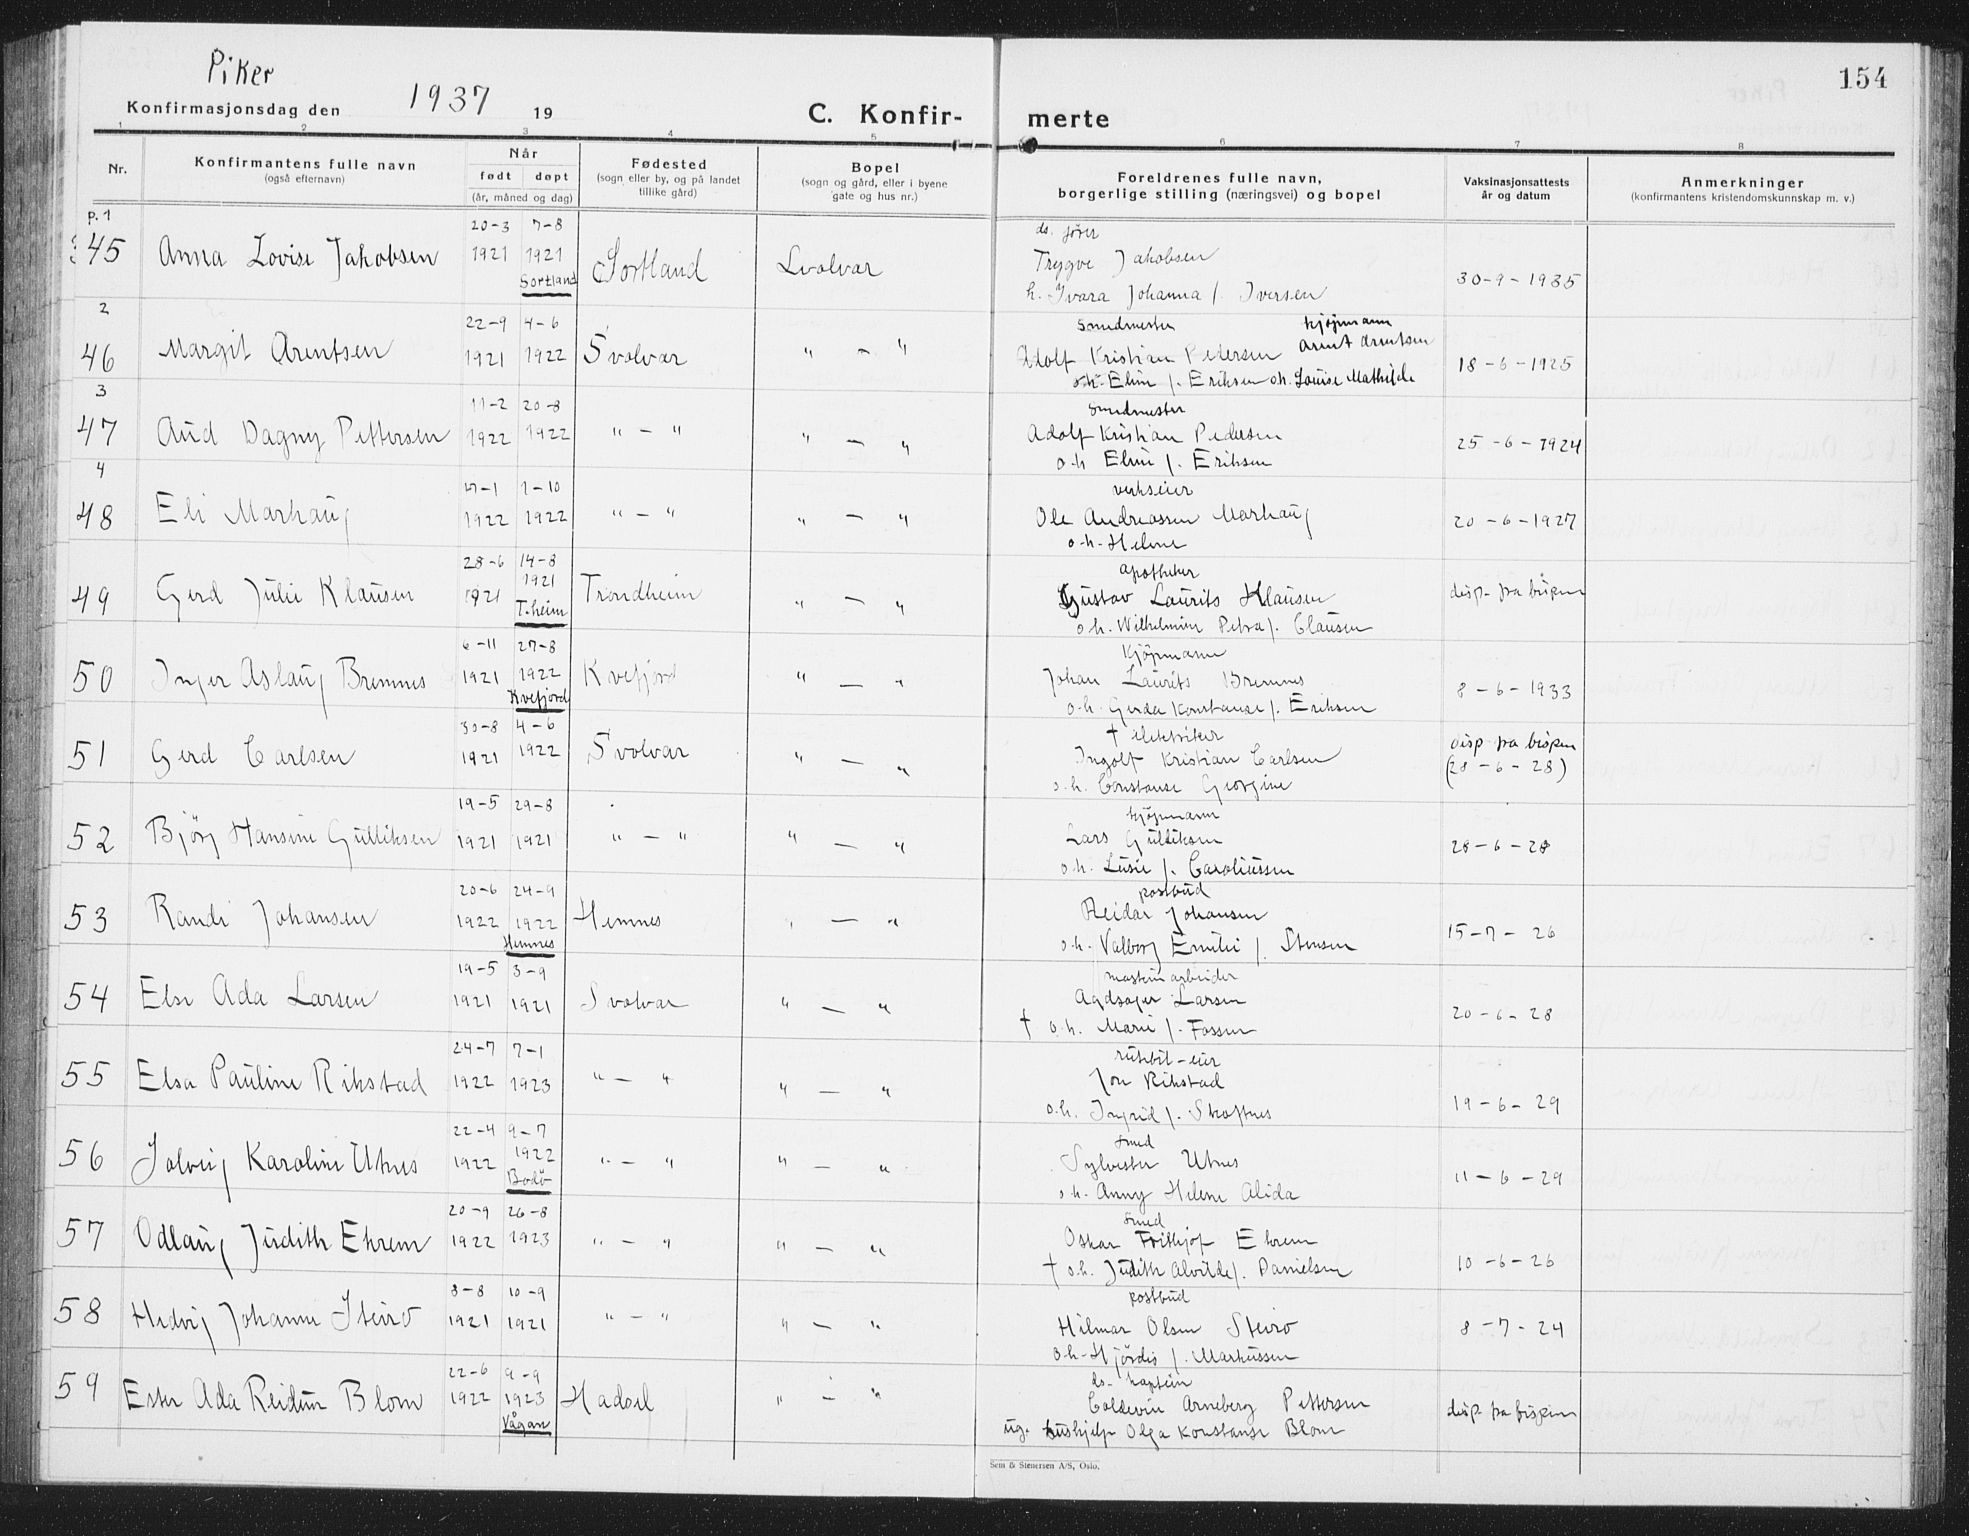 Piker
154
Konfirmasjonsdag den 1937 19
C. Konfir- merte
1 2 3 4 5 6 7 8
Nr.
Konfirmantens fulle navn
(også efternavn)
Når
født døpt
(år, måned og dag)
Fødested
(sogn eller by, og på landet
tillike gård)
Bopel
(sogn og gård, eller i byene
gate og hus nr.)
Foreldrenes fulle navn,
borgerlige stilling (næringsvei) og bopel
Vaksinasjonsattests
år og datum
Anmerkninger
(konfirmantens kristendomskunnskap m. v.)
p. 1
20-3 7-8 ds. fører
45 Anna Lovise Jakobsen 1921 1921 Sortland Svolvær Trygve Jakobsen
Sortland h. Ivara Johanna f. Iversen 30-9-1935
2
22-9 4-6 smedmester kjøpmann
46 Margit Arentsen 1921 1922 Svolvær " - " Adolf Kristian Pedersen Arent Arentsen 18-6-1925
o.h. Eline f. Eriksen o.h. Louise Mathilde
3
11-2 20-8 smedmester
47 Aud Dagny Pettersen 1922 1922 " - " " - " Adolf Kristian Pedersen 25-6-1924
o.h. Eline f. Eriksen
4
17-1 1-10 verkseier
48 Eli Marhaug 1922 1922 " - " " - " Ole Andreassen Marhaug 20-6-1927
o-h- Helene
28-6 14-8 apotheker
49 Gerd Julie Klausen 1921 1921 Trondheim " - " Gustav Laurits Klausen disp. fra bispen
T.heim o.h. Wilhelmine Petra f. Clausen
6-11 27-8 kjøpmann
50 Inger Aslaug Bremnes 1921 1922 Kvefjord " - " Johan Laurits Bremnes 8-6-1933
Kvefjord o.h. Gerda Konstanse f. Eriksen
30-8 4-6 † elektriker
51 Gerd Carlsen 1921 1922 Svolvær " - " Ingolf Kristian Carlsen disp fra bispen
o.h. Constanse Georgine (28-6-28)
19-5 29-8 kjøpmann
52 Bjørg Hansine Gulliksen 1921 1921 " - " " - " Lars Gulliksen 28-6-28
o.h. Lusie f. Caroliussen
20-6 24-9 postbud
53 Randi Johansen 1922 1922 Hemnes " - " Reidar Johansen 15-7-26
Hemnes o.h. Valborg Emilie f. Stensen
19-5 3-9 maskinarbeider
54 Else Ada Larsen 1921 1921 Svolvær " - " Larsen 20-6-28
† o.h. Marie f. Fossen
24-7 7-1 rutebil-eier
55 Elsa Pauline Rikstad 1922 1923 " - " " - " Jon Rikstad 19-6-29
o.h. Ingrid f. Skoftnes
22-4 9-7 smed
56 Solveig Karoline Utnes 1922 1922 " - " " - " Sylvester Utnes 11-6-29
Bodö o.h. Anny Helene Alida
20-9 26-8 smed
57 Odlaug Judith Ekrem 1922 1923 " - " " - " Oskar Frithjof Ekrem 10-6-26
† o.h. Judith Alvilde f. Danielsen
8-8 10-9 postbud
58 Hedvig Johanne Steiro 1921 1921 " - " " - " Hilmar Olsen Steiro 8-7-24
o-h- Hjördis f. Markussen
22-6 9-9 ds- kaptein
59 Ester Ada Reidun Blom 1922 1923 Hadsel " - " Arneberg Pettersen disp. fra bispen
Vågan ug. hushjelp Olga Konstanse Blom
Sem & Stenersen A/S, Oslo.